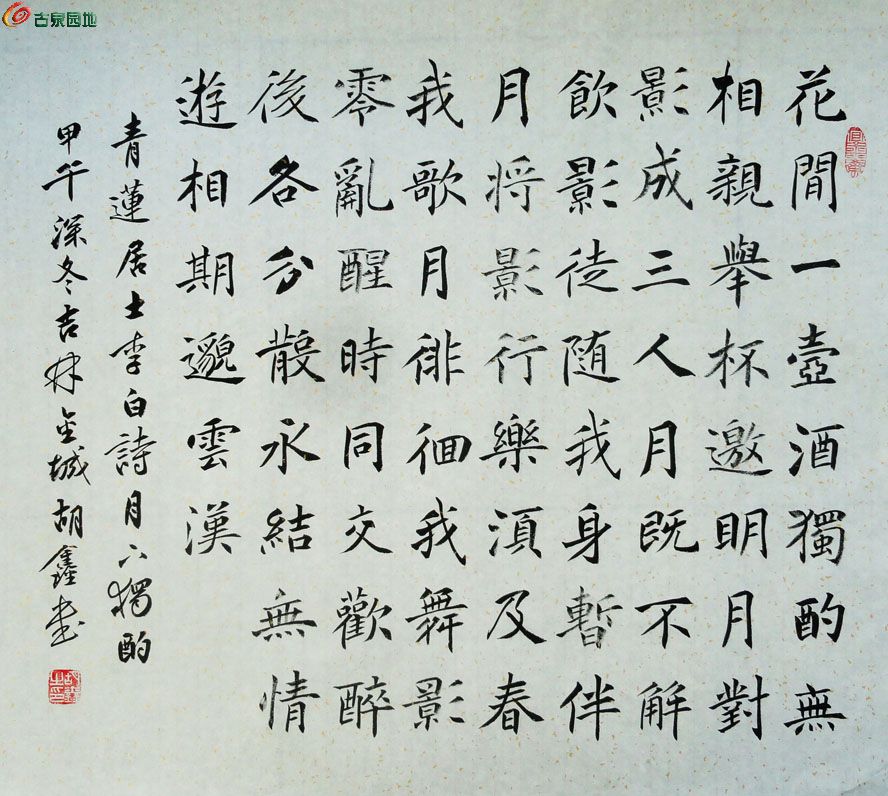 花間一壺酒獨酌無
相親舉杯邀明月對
影成三人月既不解
飲影徒随我身暫伴
月将影行樂湏及春
我歌月徘徊我舞影
零亂醒時同交歡醉
後各分散永結無情
遊相期邈雲漢
青蓮居士李白詩月下獨酌
甲午深冬吉林金城胡鑫书
古泉园地